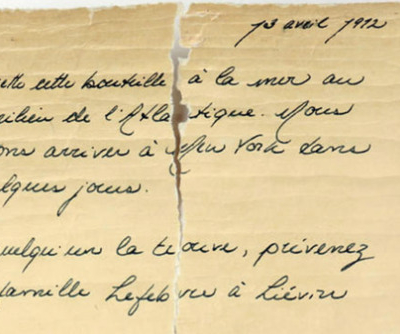 13 avril 1912
ette cette bouteille à la mer au
milieu de l'Atlantique. Nous
ons arriver à New York dans
elques jours.
uelqu'un la trouve, prévenez
famille Lefebvre à Liévin